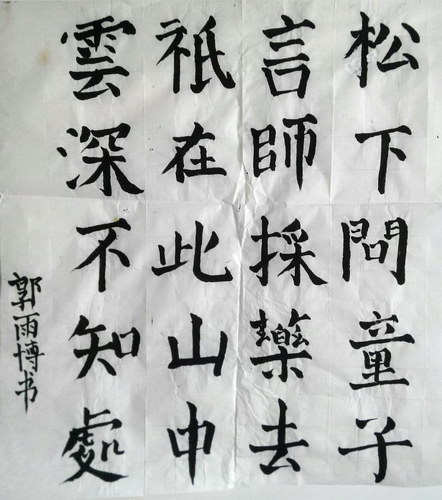 松下問童子
言師採藥去
祇在此山中
雲深不知處
郭雨博书